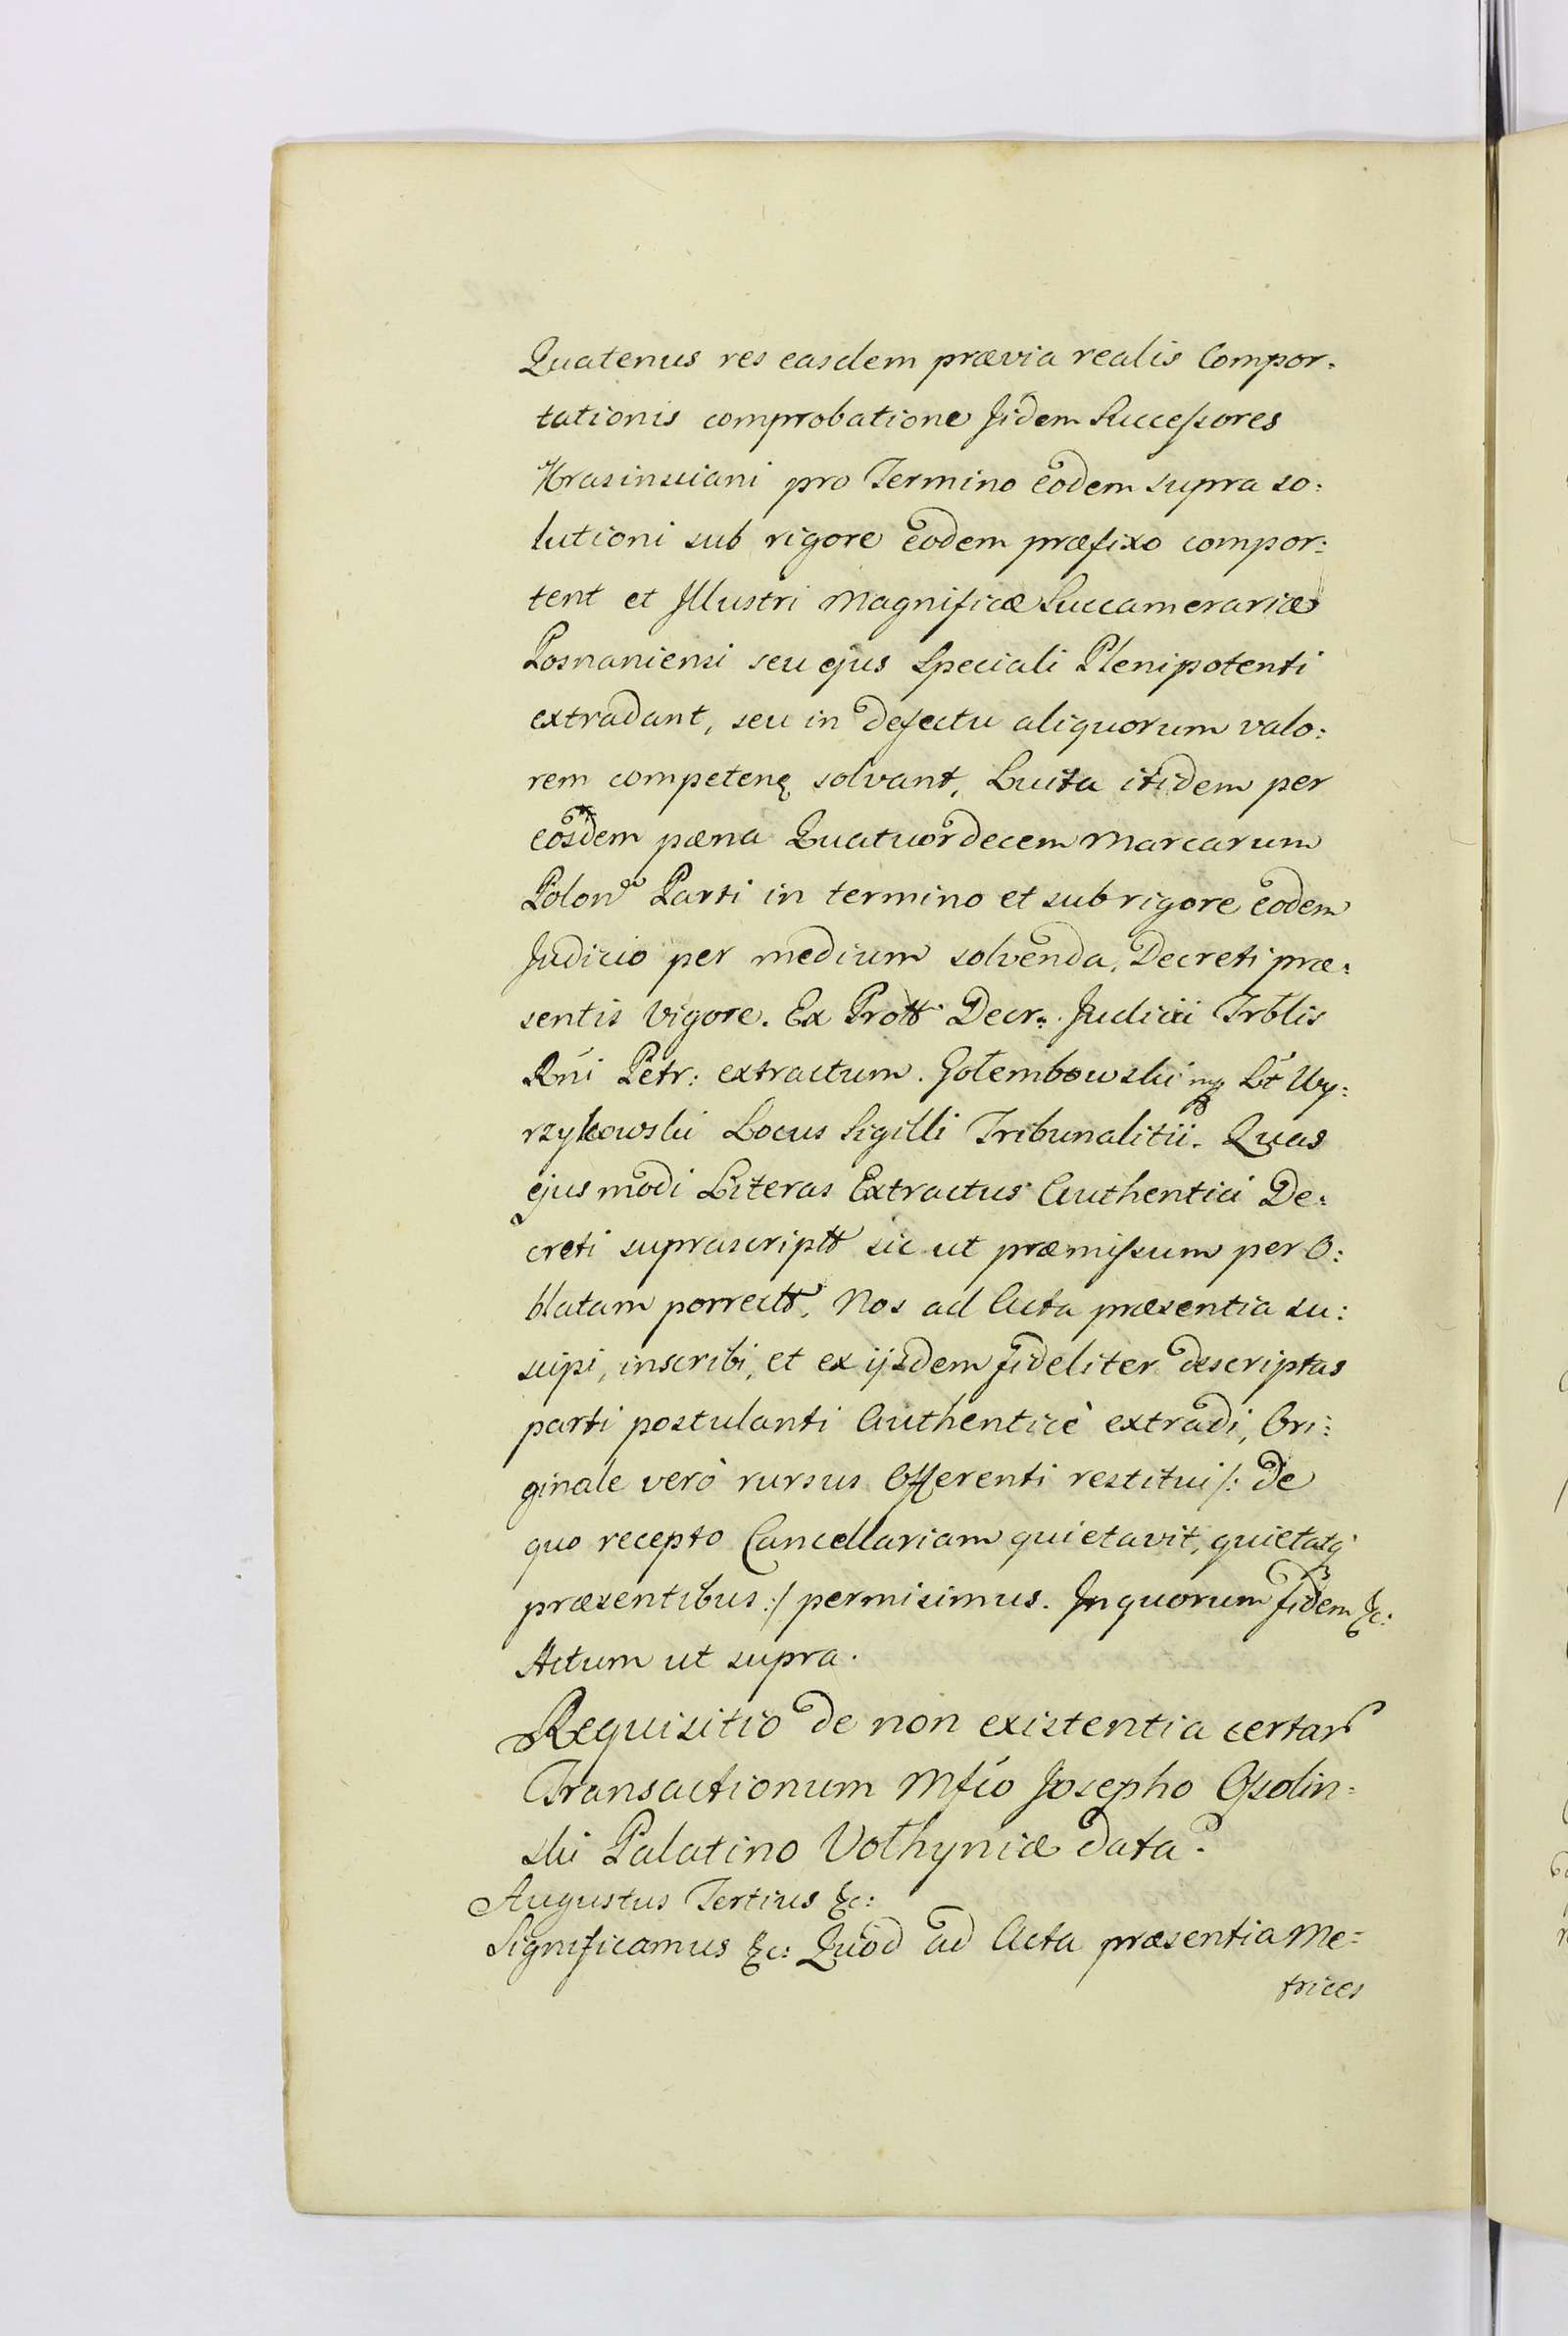 Quatenus res easdem prævia realis Compor.
tationis comprobatione Jidem Succeſsores
Krasinsciani pro Termino eodem supra so:
lutioni sub rigore eodem præfixo compor:
tent et Jllustri Magnificæ Succamerariæ
Posnaniensi seu ejus Speciali Plenipotenti
extradant, seu in defectu aliquorum valo:
rem competenę solvant, Luita itidem per
eosdem pæna Quatuordecem Marcarum
Polon Parti in termino et sub rigore eodem
Judicio per medium solvenda, Decreti præ:
sentis Vigore. Ex Prott Decr: Judicii Trblis
Rni Petr: extractum. Gołembowski mp Lt Wy:
rzykowski Locus Sigilli Tribunalitii. Quas
ejusmodi Literas Extractus Authentici De:
creti suprascriptt sic ut præmiſsum per O:
blatam porrectt. Nos ad Acta præsentia su:
scipi, inscribi, et ex ijsdem fideliter descriptas
parti postulanti Authenticè extradi, Ori:
ginale verò rursus Offerenti restitui /: de
quo recepto Cancellariam quietavit, quietatq
præsentibus :/ permisimus. Jn quorum fidem &c:
Actum ut supra.
Requisitio de non existentia certar
Transactionum Mfco Josepho Oſsolin=
ski Palatino Volhyniæ data.
Augustus Tertius &c:
Significamus &c: Quod ad Acta præsentia Me=
trices